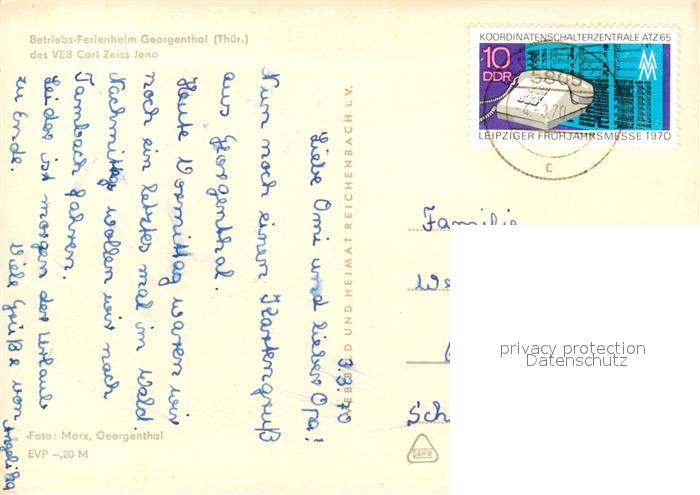 Betriebs-Ferienheim Georgenthal (Thür.)
des VEB Carl Zeiss Jena
KOORDINATENSCHALTERZENTRALE ATZ 65
10
DDR
LEIPZIGER FRÜHJAHRSMESSE 1970
5805
70
c
3.3.70
Liebe Omi und lieber Opa!
Nun noch einen Kartengruß
aus Georgenthal.
Heute Vormittag waren wir
noch ein letztes mal im Wald.
Nachmittag wollen wir nach
Tambach fahren.
Leider ist morgen der Urlaub
zu Ende.
Viele Grüße von
Angelika
UND HEIMAT REICHENBACH i. V.
Familie
We
Sch
privacy protection
Datenschutz
Foto: Marx, Georgenthal
EVP –,20 M
DAMW